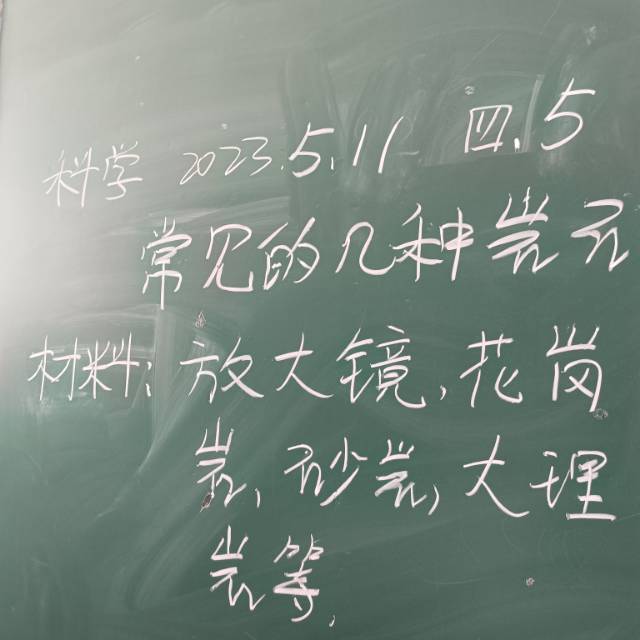 科学 2023.5.11 四.5
常见的几种岩石
材料:放大镜,花岗
岩,砂岩,大理
岩等.